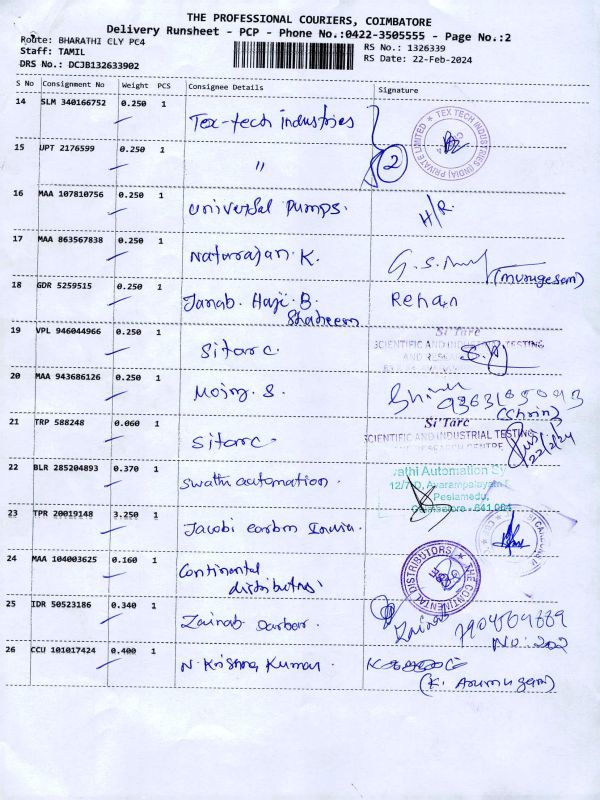 THE PROFESSIONAL COURIERS, COIMBATORE
Delivery Runsheet - PCP - Phone No.:0422-3505555 - Page No.:2
Route: BHARATHI CLY PC4
RS No.: 1326339
Staff: TAMIL
RS Date: 22-Feb-2024
DRS No.: DCJB132633902
S No Consignment No Weight PCS Consignee Details Signature
14 SLM 340166752 0.250 1 Tex-tech industries
TEX TECH INDUSTRIES (INDIA) PRIVATE LIMITED
15 UPT 2176599 0.250 1 " 2
16 MAA 107810756 0.250 1 Universal Pumps. H/R.
17 MAA 863567838 0.250 1 Natarajan. K. G.S. (murugesan)
18 GDR 5259515 0.250 1 Janab. Haji. B. Rehan
Shaheen
19 VPL 946044966 0.250 1 Sitarc.
Si'Tarc
SCIENTIFIC AND INDUSTRIAL TESTING
AND RESEARCH
20 MAA 943686126 0.250 1 S.
(Chrin)
21 TRP 588248 0.060 1 Sitarc.
Si'Tarc
SCIENTIFIC AND INDUSTRIAL TESTING
RESEARCH CENTRE
22/2/24
22 BLR 285204893 0.370 1 Swathi automation.
Swathi Automation Sy
12/7-D, Avarampalayam
Peelamedu,
Coimbatore - 641 004
23 TPR 20019148 3.250 1 Jacobi carbon India.
24 MAA 104003625 0.160 1 Continental
distributors
THE CONTINENTAL DISTRIBUTORS
25 IDR 50523186 0.340 1 Zainab Zainab
No: 202
26 CCU 101017424 0.400 1 N. Krishna Kumar.
(K. Arumugam)